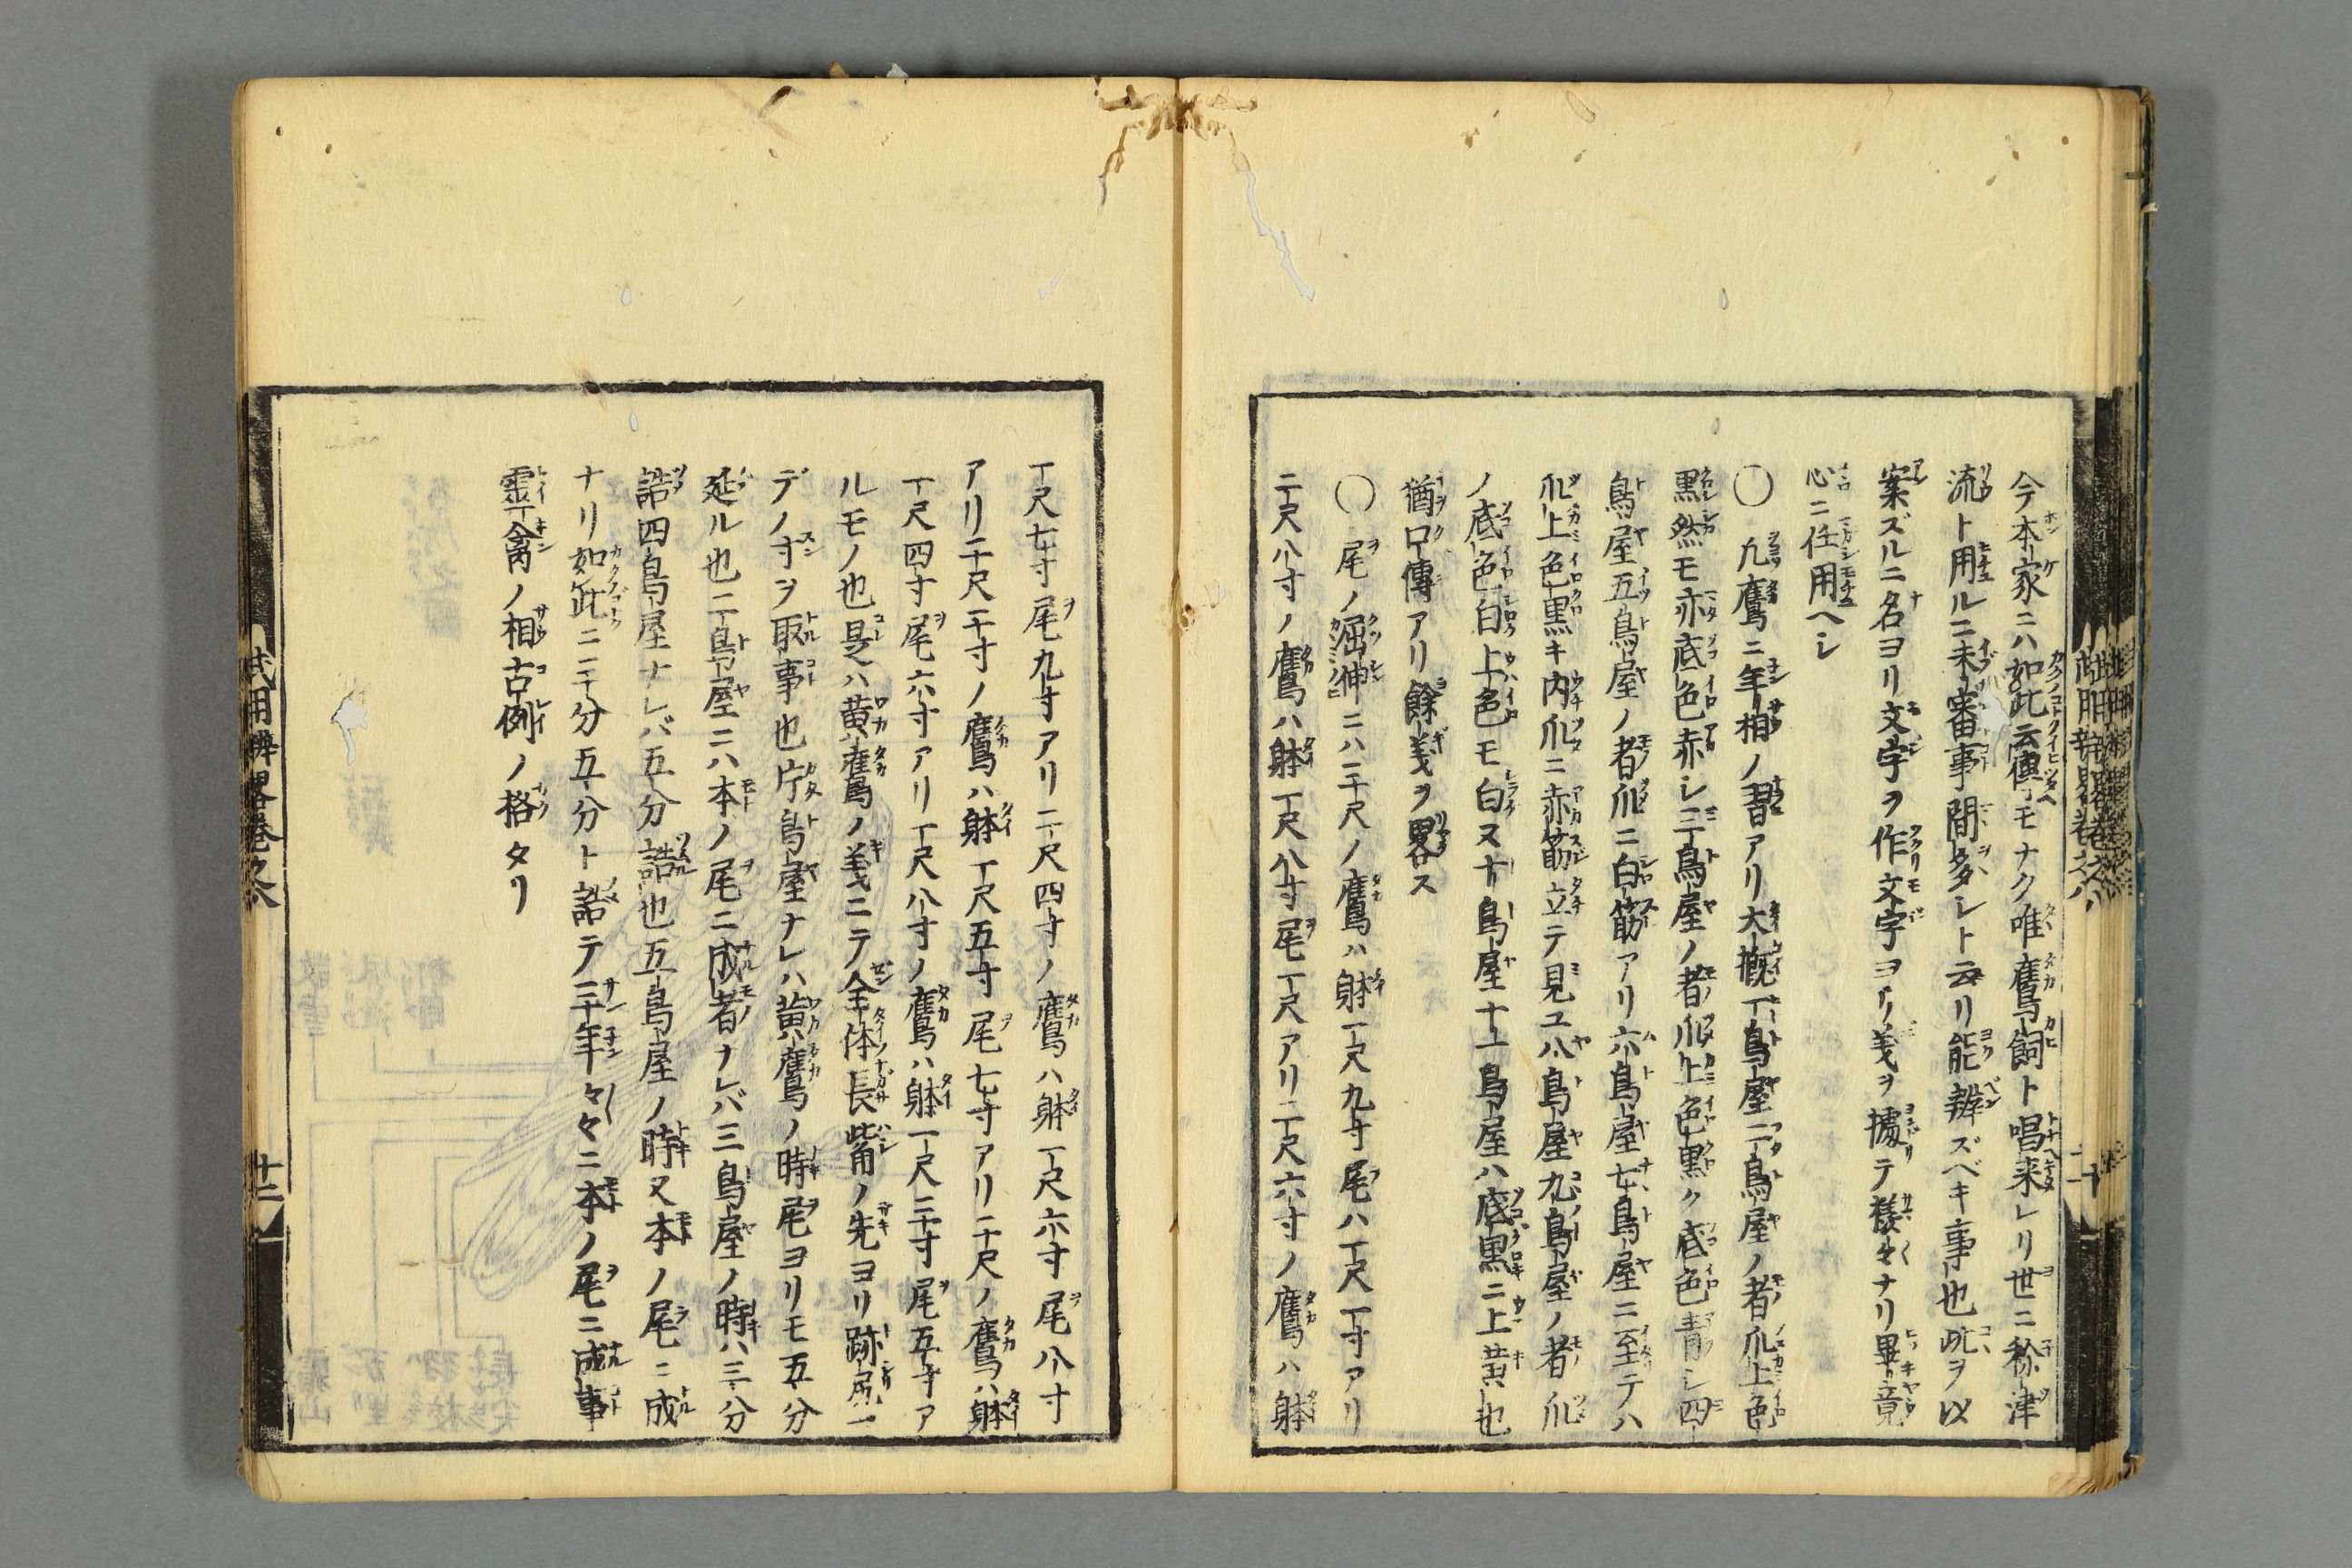 今本家ニハ如此云傳モナク唯鷹飼ト唱来レリ世ニ称津
流ト用ルニ未審事間多シト云リ能辨ズベキ事也此ヲ以
案ズルニ名ヨリ文字ヲ作文字ヨリ義ヲ據テ様々ナリ畢竟
心ニ任用ヘシ
〇凢鷹ニ年相ノ習アリ大概一鳥屋二鳥屋ノ者爪上色
黒然モ亦底色赤シ三鳥屋ノ者爪上色黒ク底色青シ四
鳥屋五鳥屋ノ者爪ニ白筋アリ六鳥屋七鳥屋ニ至テハ
爪上色黒キ内爪ニ赤筋立テ見ユ八鳥屋九鳥屋ノ者爪
ノ底色白上色モ白又十鳥屋十一鳥屋ハ底黒ニ上黄也
猶口傳アリ餘義ヲ畧ス
〇尾ノ屈伸ニハ三尺ノ鷹ハ躰一尺九寸尾ハ一尺一寸アリ
二尺八寸ノ鷹ハ躰一尺八寸尾一尺アリ二尺六寸ノ鷹ハ躰
一尺七寸尾九寸アリ二尺四寸ノ鷹ハ躰一尺六寸尾八寸
アリ二尺二寸ノ鷹ハ躰一尺五寸尾七寸アリ二尺ノ鷹ハ躰
一尺四寸尾六寸アリ一尺八寸ノ鷹ハ躰一尺三寸尾五寸ア
ルモノ也是ハ黄鷹ノ義ニテ全体長觜ノ先ヨリ跡尻ニ
デノ寸ヲ取事也片鳥屋ナレハ黄鷹ノ時尾ヨリモ五分
延ル也二鳥屋ニハ本ノ尾ニ成者ナレバ三鳥屋ノ時ハ三分
詰四鳥屋ナレバ五分詰也五鳥屋ノ時又本ノ尾ニ成
ナリ如此ニ三分五分ト詰テ三年々々ニ本ノ尾ニ成事
霊禽ノ相古例ノ格タリ
武用辨畧巻之八
十二